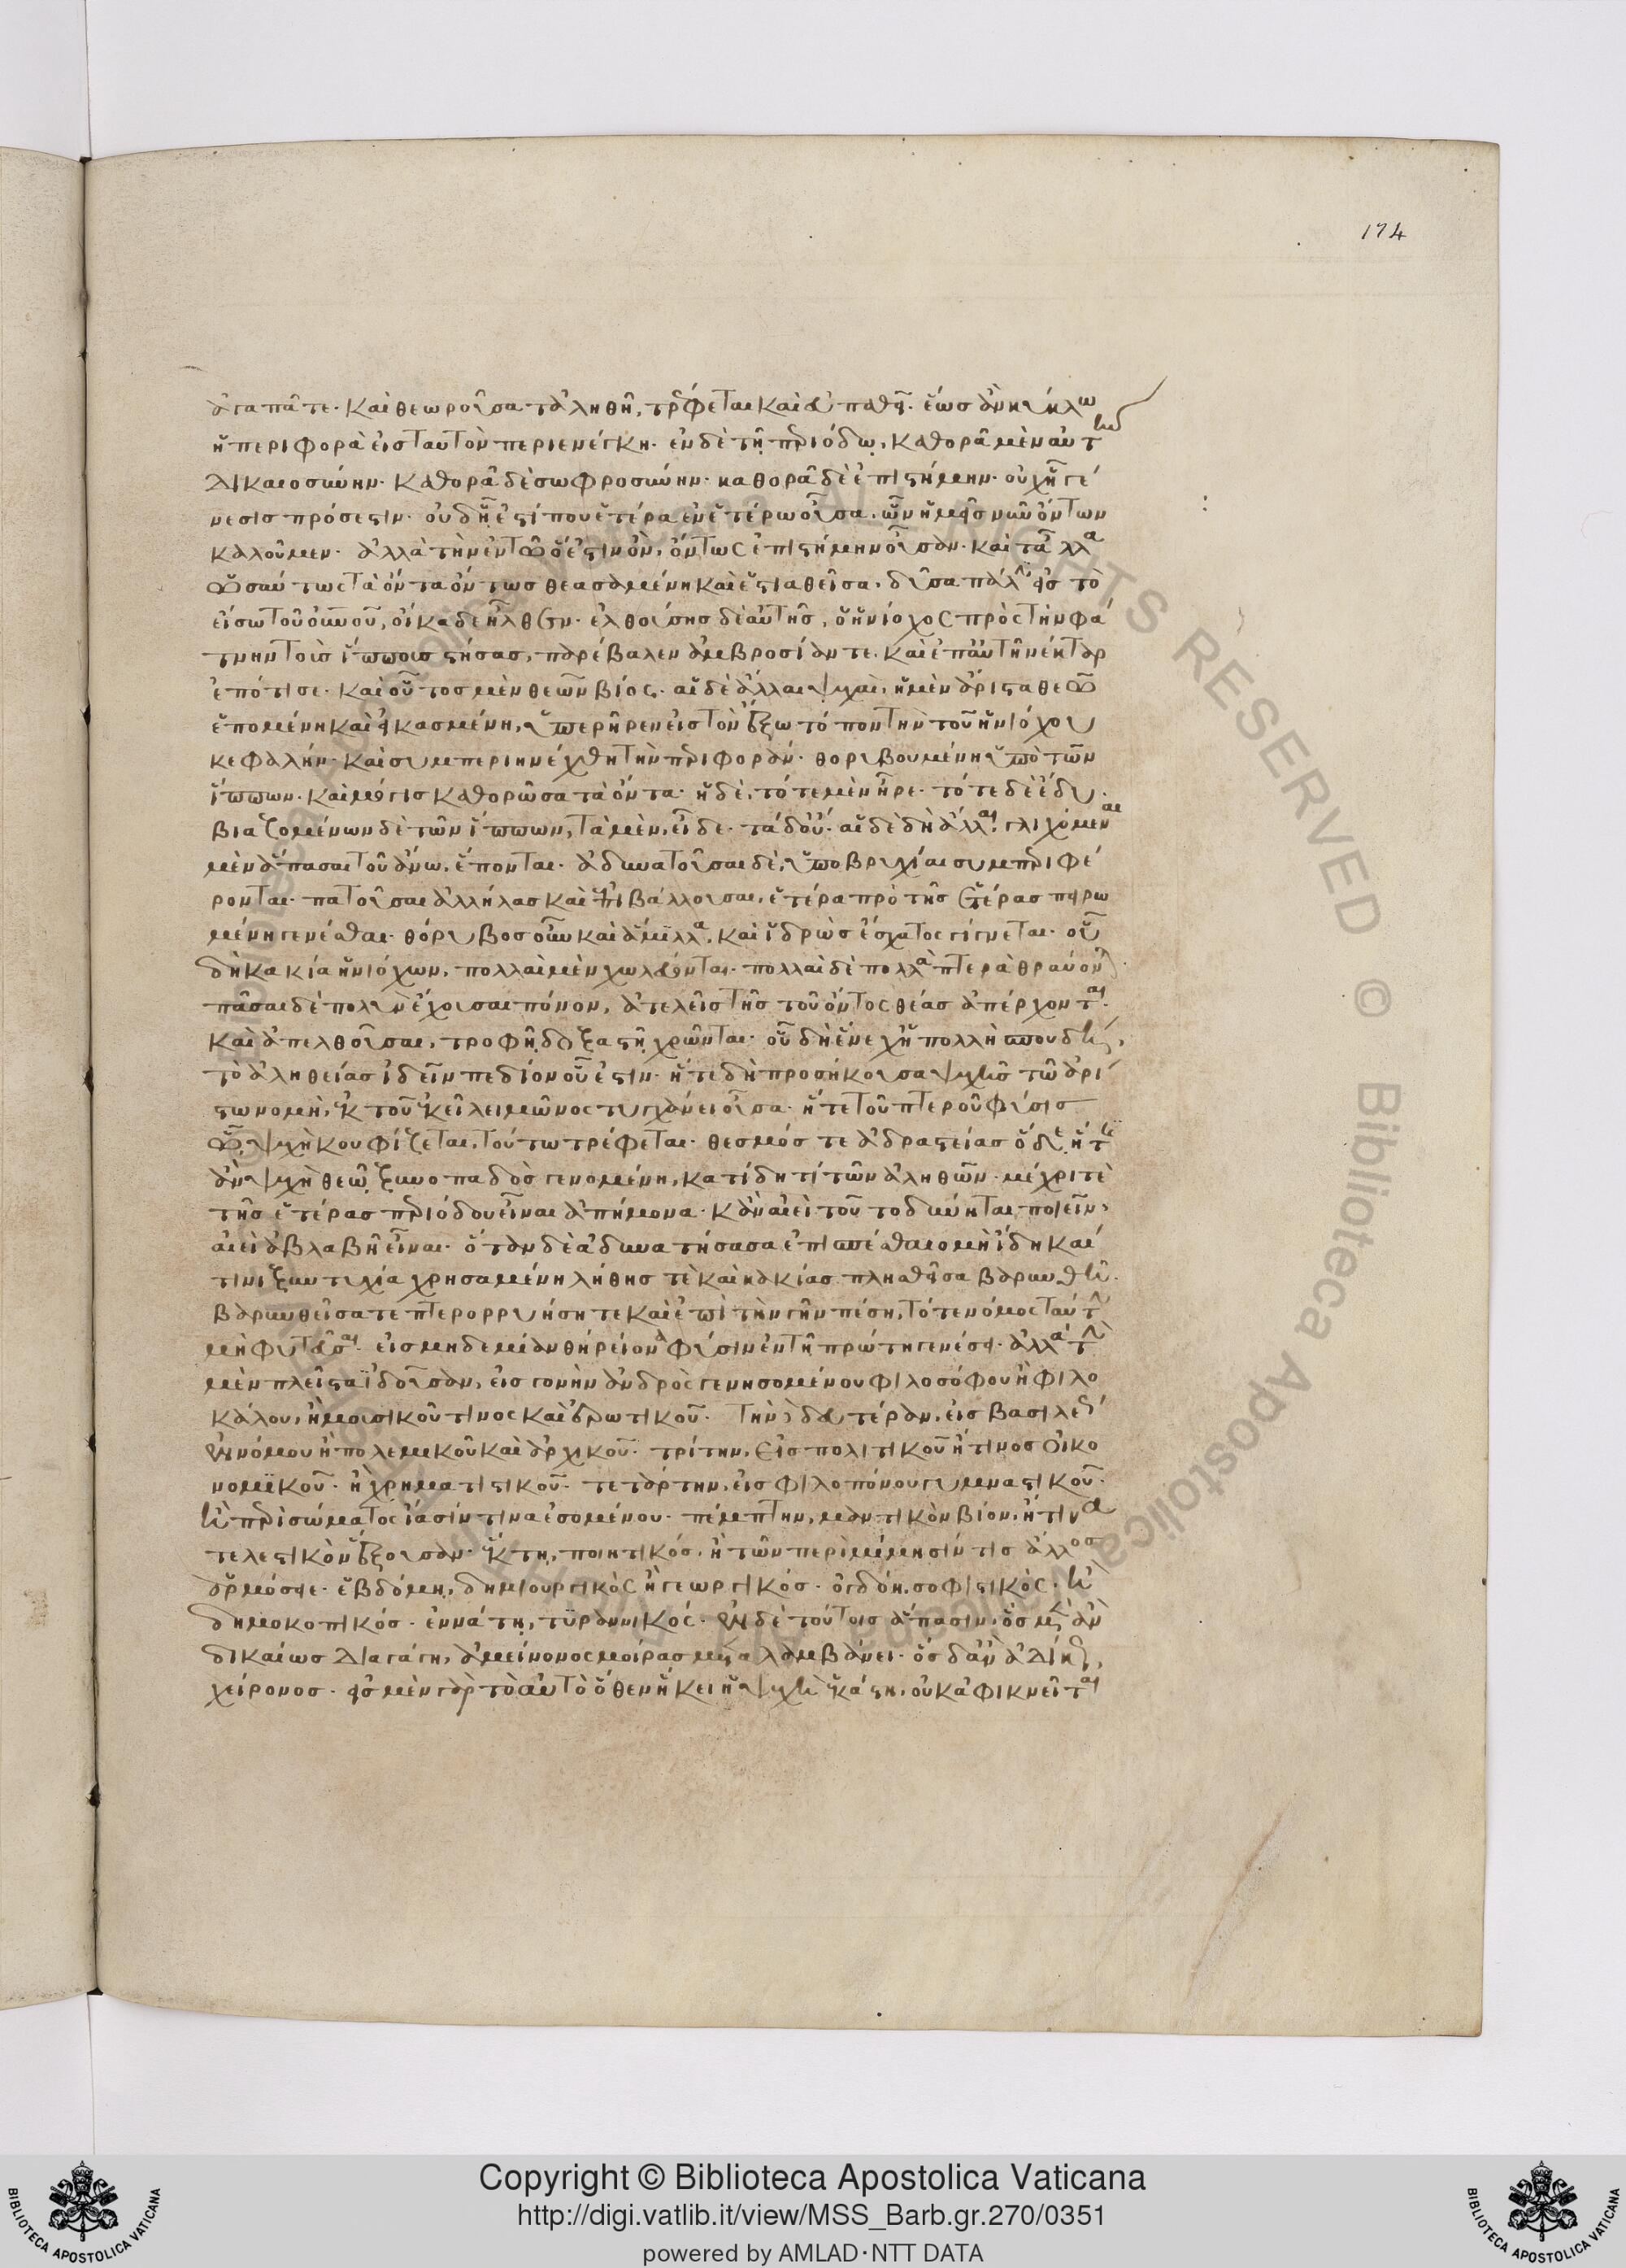 174
ἀγαπᾶτε· καὶ θεωροῦσα τἀληθῆ, τρέφεται καὶ εὐπαθεῖ· ἕως ἂν κύκλω
ἡ περιφορὰ εἰς ταυτὸν περιενέγκη· ἐν δὲ τῆ περιόδω, καθορᾶ μὲν αὐτὴν
δικαιοσύνην· καθορᾶ δὲ σωφροσύνην· καθορᾶ δὲ ἐπιστήμην· οὐχ ἧ γέ
νεσις πρόσεστιν· οὐδ' ἥ ἐστί που ἑτέρα ἐν ἑτέρω οὖσα, ὧν ἡμεῖς νῦν ὄντων
καλοῦμεν· ἀλλὰ τὴν ἐν τῶ ὅ ἐστιν ὂν, ὄντως ἐπιστήμην οὖσαν· καὶ τἆλλα
ὡσαύτως τὰ ὄντα ὄντως θεασαμένη καὶ ἑστιαθεῖσα, δῦσα πάλιν εἰς τὸ
εἴσω τοῦ οὐρανοῦ, οἴκαδε ἦλθεν· ἐλθούσης δὲ αὐτῆς, ὁ ἡνίοχος πρὸς τὴν φά
τνην τοὺς ἵππους στήσας, παρέβαλεν ἀμβροσίαν τε· καὶ ἐπ' αὐτῆ νέκταρ
ἐπότισε· καὶ οὗτος μὲν θεῶν βίος· αἱ δὲ ἄλλαι ψυχαὶ, ἡ μὲν ἄριστα θεῶ
ἑπομένη καὶ εἰκασμένη, ὑπερῆρεν εἰς τὸν ἔξω τόπον τὴν τοῦ ἡνιόχου
κεφαλήν· καὶ συμπεριηνέχθη τὴν περιφοράν· θορυβουμένη ὑπὸ τῶν
ἵππων· καὶ μόγις καθορῶσα τὰ ὄντα· ἡ δὲ, τότε μὲν ἦρε· τότε δὲ ἔδυ·
βιαζομένων δὲ τῶν ἵππων, τὰ μὲν, εἶδε· τὰ δ' οὔ· αἱ δὲ δὴ ἄλλαι, γλιχόμεναι
μὲν ἅπασαι τοῦ ἄνω, ἕπονται· ἀδυνατοῦσαι δὲ, ὑποβρύχιαι συμπεριφέ
ρονται· πατοῦσαι ἀλλήλας καὶ ἐπιβάλλουσαι, ἑτέρα πρὸ τῆς ἑτέρας πειρω
μένη γενέσθαι· θόρυβος οὖν καὶ ἅμιλλα, καὶ ἱδρὼς ἔσχατος γίγνεται· οὗ
δὴ κακία ἡνιόχων, πολλαὶ μὲν χωλεύονται· πολλαὶ δὲ πολλὰ πτερὰ θραύονται·
πᾶσαι δὲ πολὺν ἔχουσαι πόνον, ἀτελεῖς τῆς τοῦ ὄντος θέας ἀπέρχονται·
καὶ ἀπελθοῦσαι, τροφῆ δοξαστῆ χρῶνται· οὗ δὴ ἕνεχ' ἡ πολλὴ σπουδὴ,
τὸ ἀληθείας ἰδεῖν πεδίον οὗ ἐστιν· ἥ τε δὴ προσήκουσα ψυχῆς τῶ ἀρί
στω νομὴ, ἐκ τοῦ ἐκεῖ λειμῶνος τυγχάνει οὖσα· ἥ τε τοῦ πτεροῦ φύσις
ὧ ψυχὴ κουφίζεται, τούτω τρέφεται· θεσμός τε ἀδραστείας ὅδε, ἥ τις
ἂν ψυχὴ θεῶ ξυνοπαδὸς γενομένη, κατίδη τί τῶν ἀληθῶν· μέχρι τὲ
τῆς ἑτέρας περιόδου εἶναι ἀπήμονα· κἂν ἀεὶ τοῦτο δύνηται ποιεῖν,
ἀεὶ ἀβλαβῆ εἶναι· ὅταν δὲ ἀδυνατήσασα ἐπισπέσθαι μὴ ἴδη καί
τινι ξυντυχία χρησαμένη λήθης τὲ καὶ κακίας πλησθεῖσα βαρυνθῆ·
βαρυνθεῖσα τε πτερορρυήση τε καὶ ἐπὶ τὴν γῆν πέση, τότε νόμος ταύτην
μὴ φυτεῦσαι εἰς μηδεμίαν θήρειον φύσιν ἐν τῆ πρώτη γενέσει· ἀλλὰ τὴν
μὲν πλεῖστα ἰδοῦσαν, εἰς γονὴν ἀνδρὸς γενησομένου φιλοσόφου ἢ φιλο
κάλου, ἢ μουσικοῦ τινος καὶ ἐρωτικοῦ· τὴν δὲ δευτέραν, εἰς βασιλέως
ἐννόμου ἢ πολεμικοῦ καὶ ἀρχικοῦ· τρίτην, εἰς πολιτικοῦ ἤ τινος οἰκο
νομικοῦ· ἢ χρηματιστικοῦ· τετάρτην, εἰς φιλοπόνου γυμναστικοῦ·
ἢ περὶ σώματος ἴασίν τινα ἐσομένου· πέμπτην, μαντικὸν βίον, ἤ τινα
τελεστικὸν ἕξουσαν· ἕκτη, ποιητικός, ἢ τῶν περὶ μίμησίν τις ἄλλος
ἁρμόσει· ἑβδόμη, δημιουργικὸς ἢ γεωργικός· ὀγδόη, σοφιστικὸς· ἢ
δημοκοπικός· ἐννάτη, τυραννικός· ἐν δὲ τούτοις ἅπασιν, ὃς μὲν ἂν
δικαίως διαγάγη, ἀμείνονος μοίρας μεταλαμβάνει· ὃς δ' ἂν ἀδίκως,
χείρονος· εἰς μὲν γὰρ τὸ αὐτὸ ὅθεν ἥκει ἡ ψυχὴ ἑκάστη, οὐκ ἀφικνεῖται
ALL RIGHTS RESERVED © Biblioteca Apostolica Vaticana
Copyright © Biblioteca Apostolica Vaticana
http://digi.vatlib.it/view/MSS_Barb.gr.270/0351
powered by AMLAD·NTT DATA
BIBLIOTECA APOSTOLICA VATICANA
BIBLIOTECA APOSTOLICA VATICANA